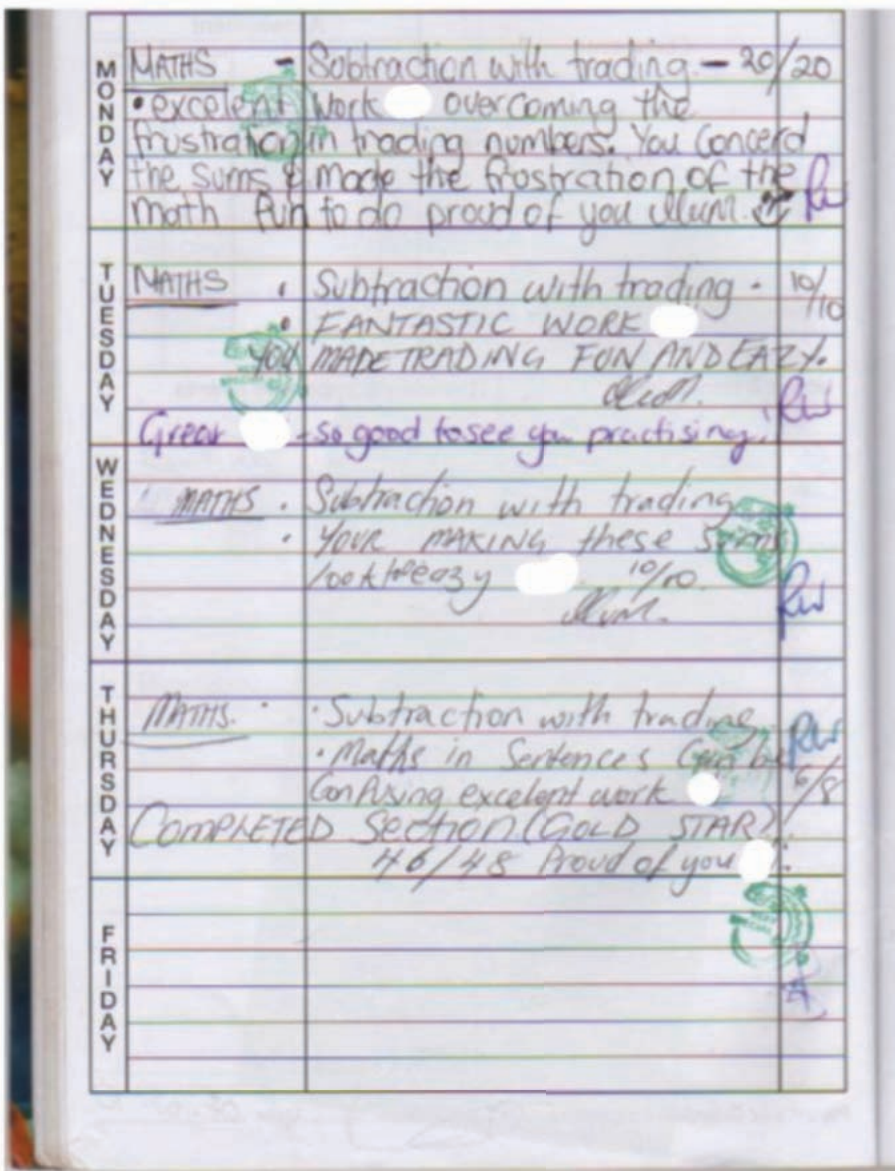 MONDAY
MATHS - Subtraction with trading - 20/20
• excelent work overcoming the
frustration in trading numbers. You Concerd
the sums & made the frostration of the
math fun to do proud of you Mum. RW
TUESDAY
MATHS • Subtraction with trading - 10/10
• FANTASTIC WORK
YOU MADE TRADING FUN AND EAZY.
Mum. RW
Great - so good to see you practising!
WEDNESDAY
MATHS • Subtraction with trading
• YOUR MAKING these sums
look eazy 10/10
Mum. RW
THURSDAY
MATHS. • Subtraction with trading RW
• Maths in Sentences Can be
Confusing excelent work 6/8
COMPLETED Section (GOLD STAR)
46/48 Proud of you
FRIDAY